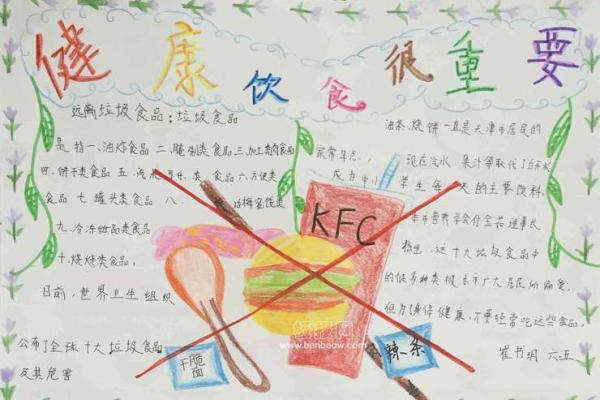 健康饮食很重要
远离垃圾食品：垃圾食品
是指一、油炸食品 二、腌制类食品 三、加工类肉食品
四、饼干类食品 五、汽水可乐类食品 六、方便类
食品 七、罐头类食品 八、话梅蜜饯类
九、冷冻甜品类食品
十、烧烤类食品，
日前，世界卫生组织
公布了全球十大垃圾食品
及其危害
油茶、烧饼一直是天津市居民的
家常早点，现在汽水、果汁等取代了白开水
成为中小学生每天的主要饮料
本市营养学会
指出，这十大垃圾食品中
的很多种类被本市广大居民所偏爱，
但为了身体健康，不要经常吃这些食品，
崔书玥 六、五
KFC
干脆面
辣条
www.banbaow.com